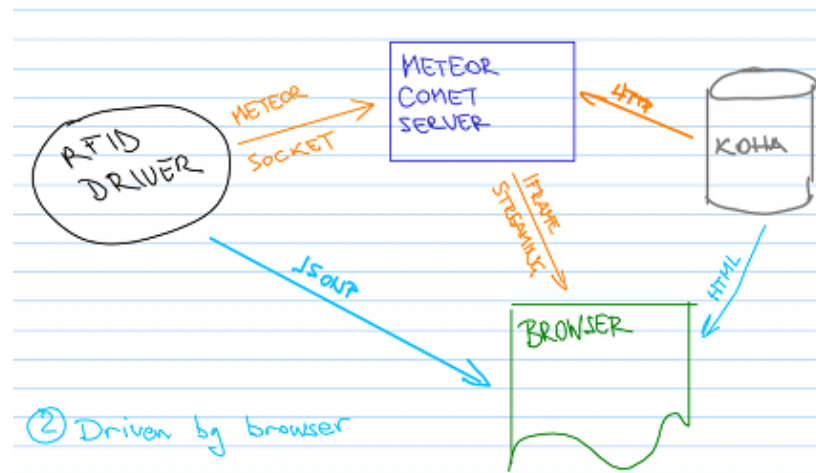 RFID
DRIVER
METEOR
SOCKET
METEOR
COMET
SERVER
HTTP
KOHA
IFRAME
STREAMING
JSONP
HTML
BROWSER
2 Driven by browser